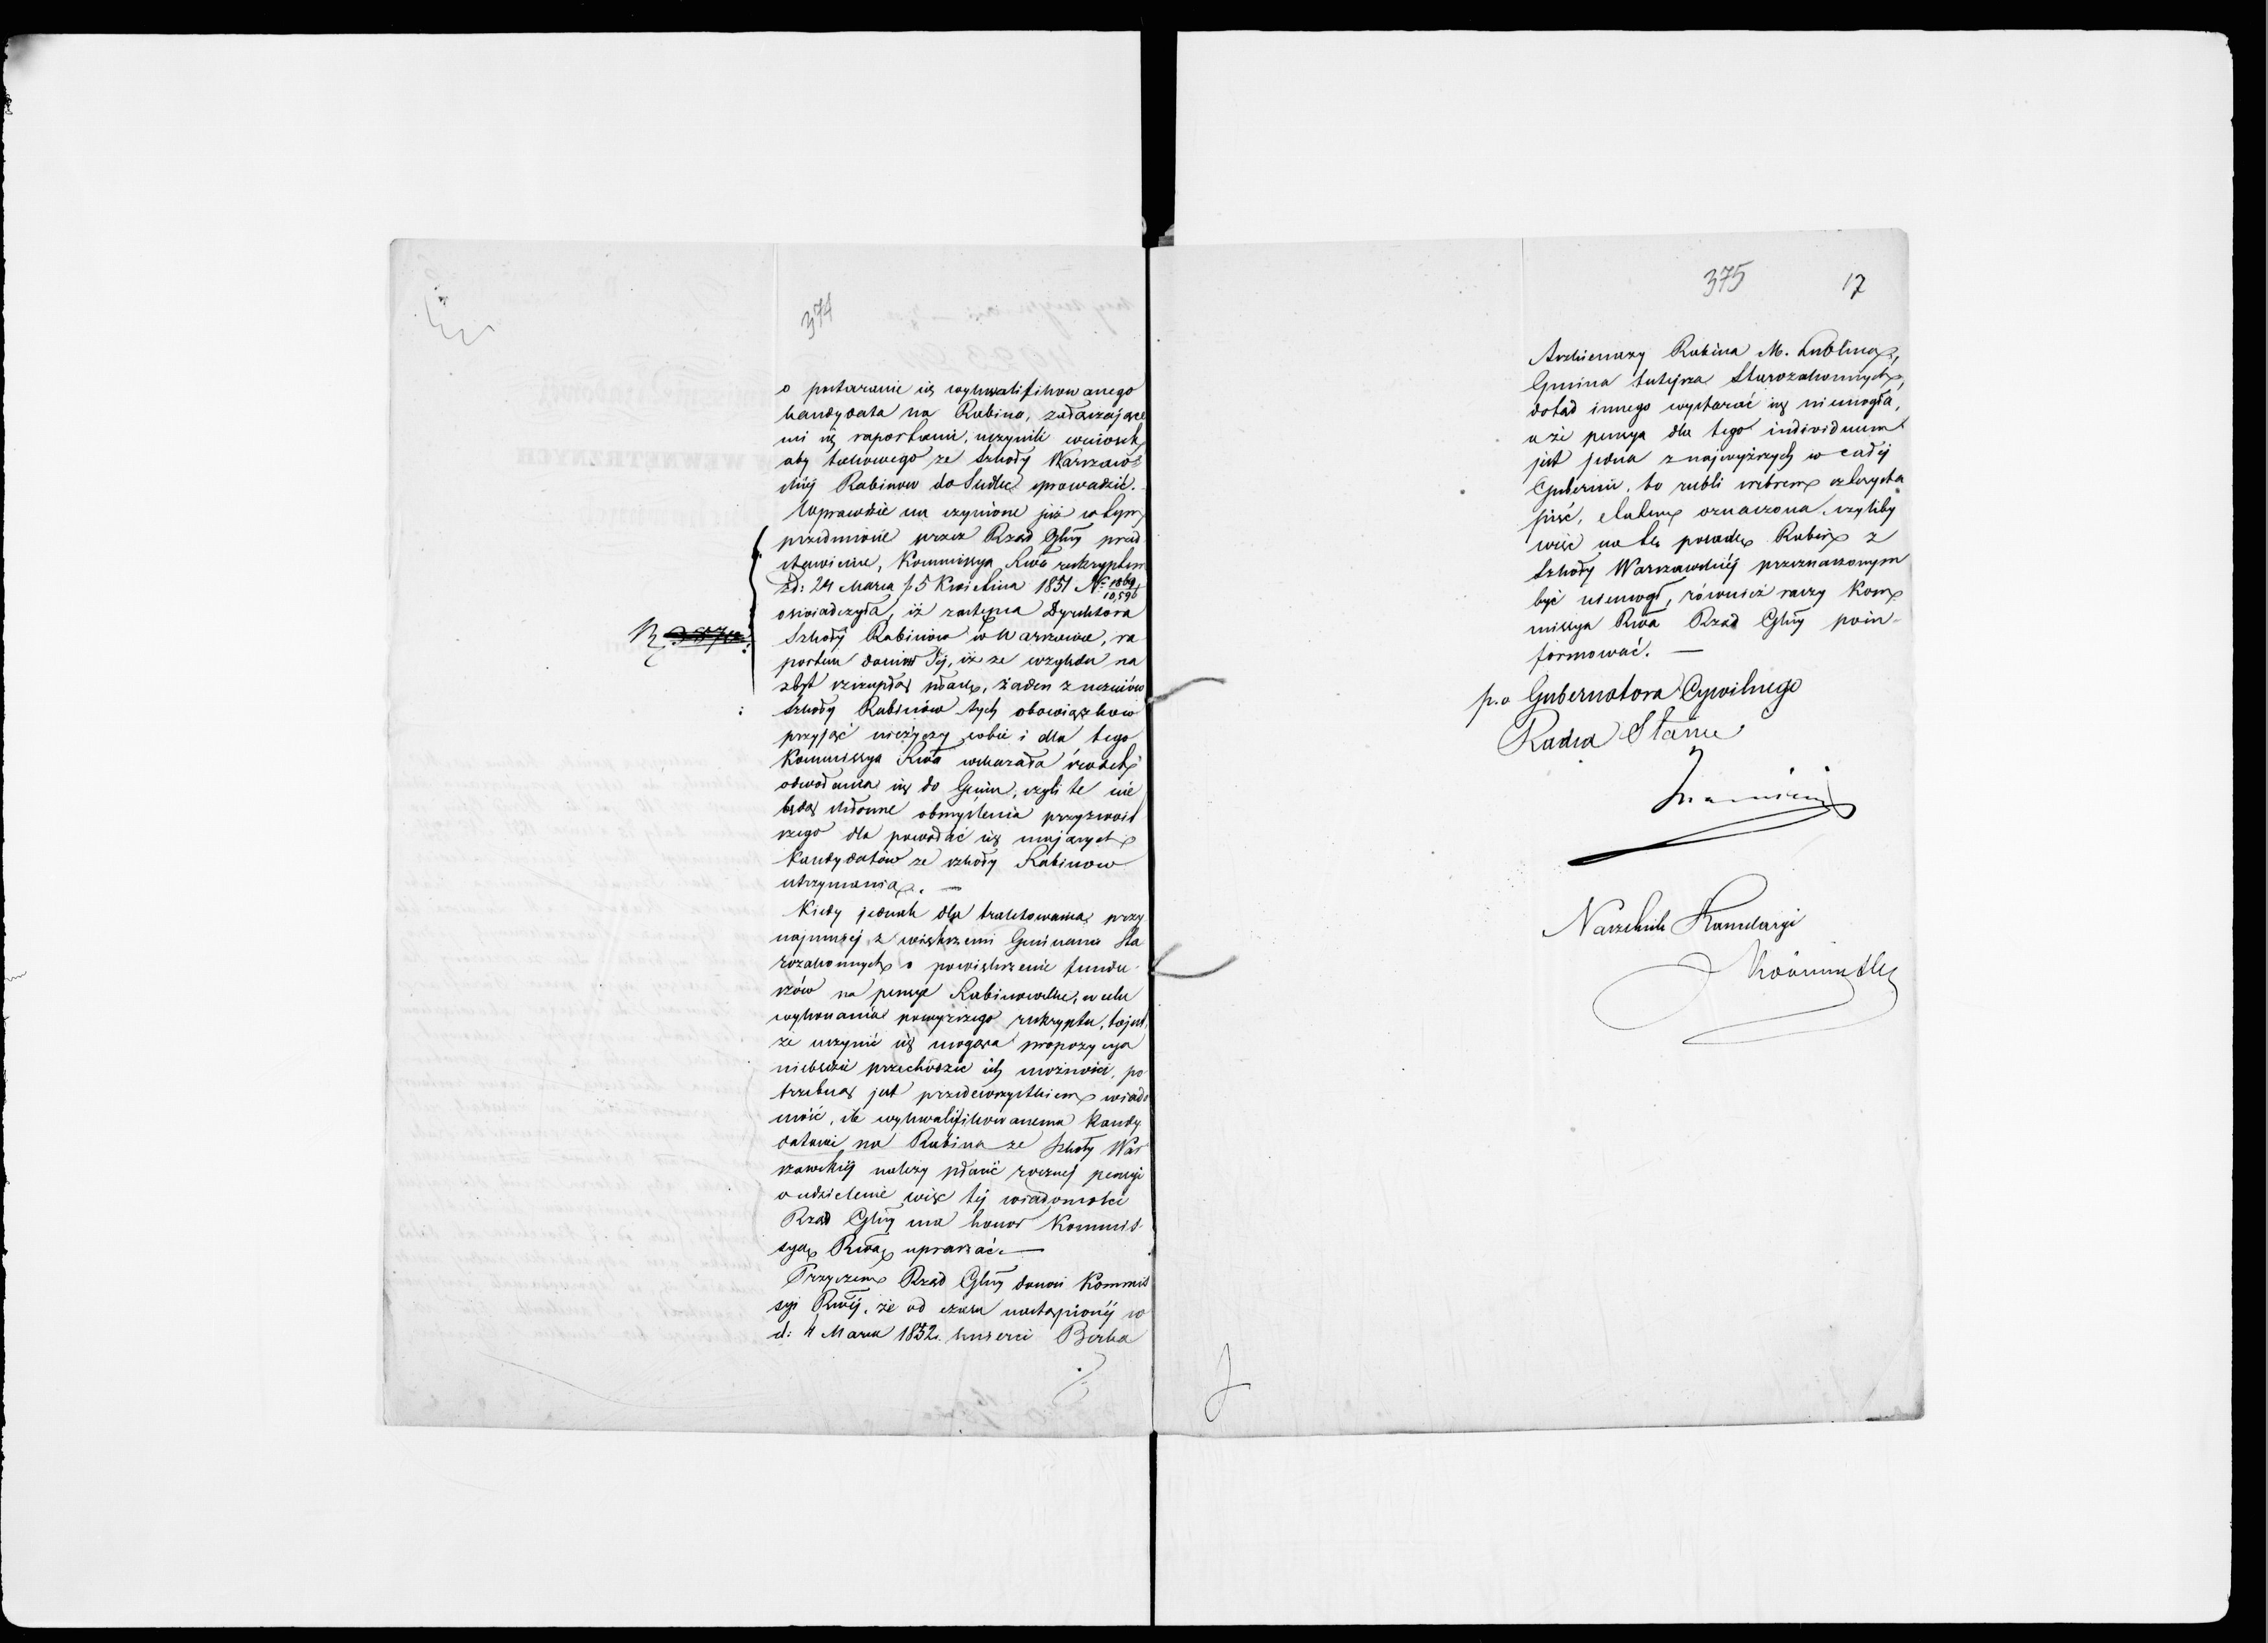 374
o postaranie się wykwalifikowanego
kandydata na Rabina, załączające
mi się raportami, uczynili wniosek
aby takowego ze Szkoły Warszaw-
skiéj Rabinów do Siedlec sprowadzić.
Wprawdzie na czynione już w tym
przedmiocie przez Rząd Głny przed
stawienie, Kommissya Rwa reskryptem
z d: 24 Marca / 5 Kwietnia 1851 N° 1869/10,596
oświadczyła, iż zastępca Dyrektora
Szkoły Rabinów w Warszawie, ra
portem doniósł Jéj, iż ze względu na
zbyt szczupłą płacę, żaden z uczniów
Szkoły Rabinów tych obowiązków
przyjąć nieżyczy sobie i dla tego
Kommissya Rwa wskazała środek
odwołania się do Gmin, czyli te nie
będą skłonne obmyślenia przyzwoit
szego dla powołać się mających
Kandydatów ze szkoły Rabinów
utrzymania. —
Kiedy jednak dla traktowania przy
najmniéj z większemi Gminami Sta
rozakonnych o powiększenie fundu
szów na pensye Rabinowskie, w celu
wykonania powyższego reskryptu, to jest
że uczynić się mogąca propozycya
niebędzie przechodzić ich możności, po
trzebną jest przedewszystkiem wiado
mość, ile wykwalifikowanemu Kandy
datowi na Rabina ze Szkoły War
szawskiéj należy płacić rocznej pensyi
o udzielenie więc téj wiadomości
Rząd Głny ma honor Kommis-
syą Rwą upraszać. —
Przyczem Rząd Głny donosi Kommis
syi Rwéj, że od czasu nastąpionéj w
d: 4 Marca 1852 śmierci Berka
375
17
Arzhienazy Rabina M. Lublina,
Gmina tutéjsza Starozakonnych,
dotąd innego wystarać się niemogła,
a że pensya dla tego individuum
jest jedna z najwyższych w całéj
Gubernii, to rubli srebrem czterysta
pięć, etatem oznaczona, czyliby
więc na tę posadę Rabin z
Szkoły Warszawskiéj przeznaczonym
być niemógł, również raczy Kom
missya Rwa Rząd Głny poin-
formować. —
p. o Gubernatora Cywilnego
Radca Stanu
Naczelnik Kancelaryi